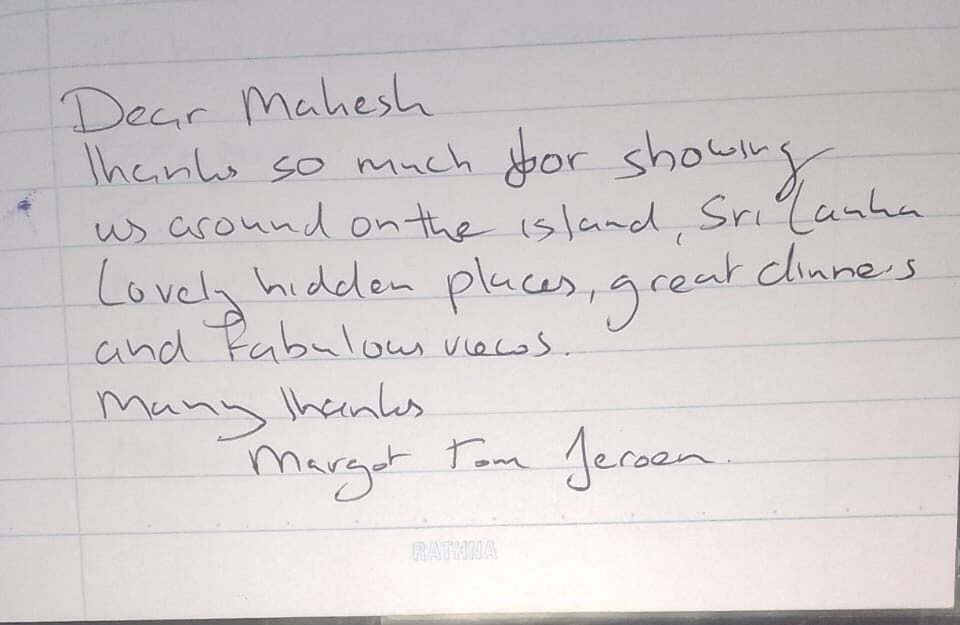 Dear Mahesh
Thanks so much for showing
us around on the island, Sri Lanka
Lovely hidden places, great dinners
and fabulous views.
Many Thanks
Margot Tom Jeroen.
RATHNA